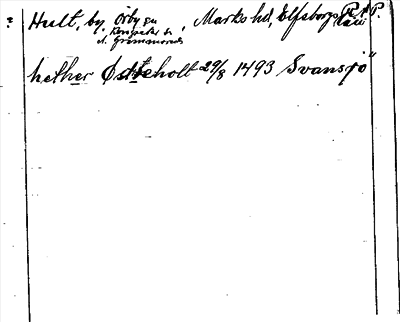 Hult, by, Örby sn, Marks hd, Elfsborgs län P.
hether Østeholt 29/8 1493 Svansjö"